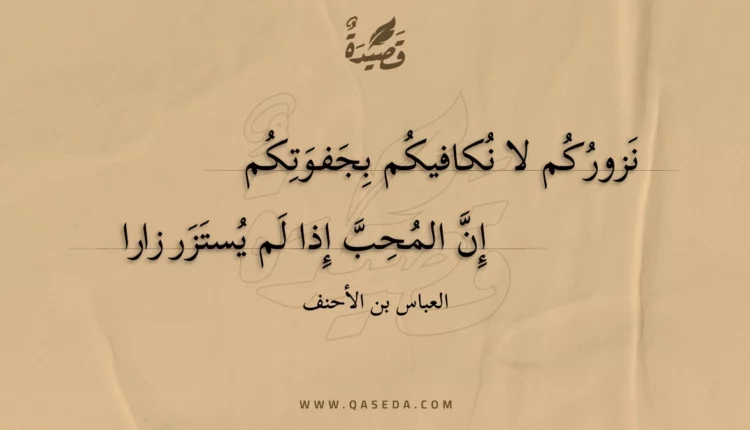 قَصِيْدَةٌ
نَزورُكُم لا نُكافيكُم بِجَفوَتِكُم
إِنَّ المُحِبَّ إِذا لَم يُستَزَر زارا
العباس بن الأحنف
WWW.QASEDA.COM